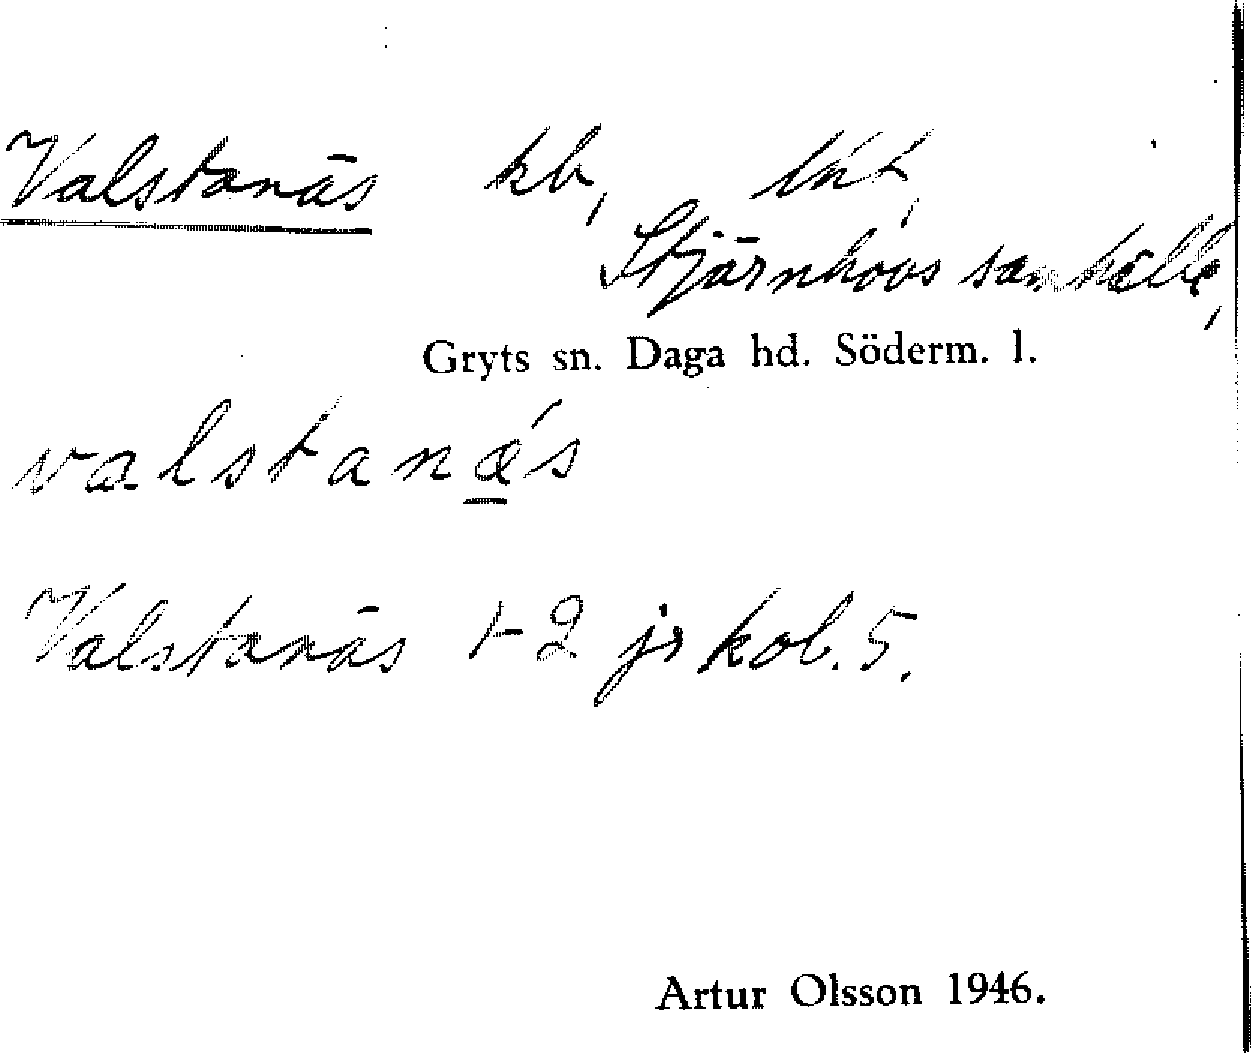 Valstanäs kb, lht,
Stjärnhovs samhälle,
Gryts sn. Daga hd. Söderm. l.
valstanǽs
Valstanäs 1-2 jr kob. 5.
Artur Olsson 1946.